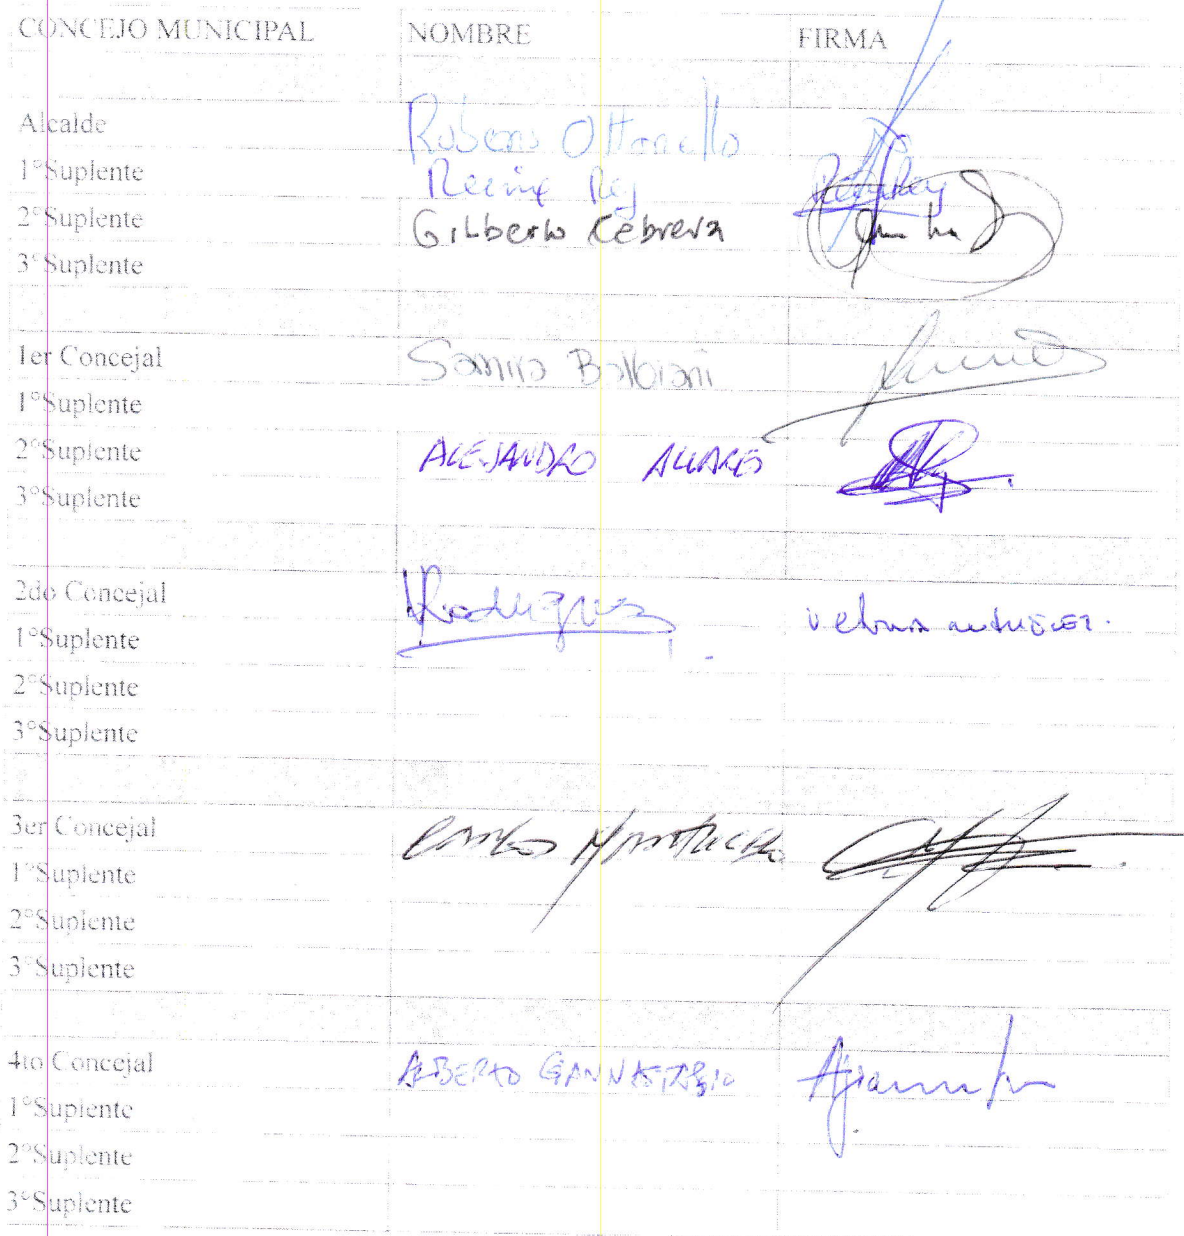 CONCEJO MUNICIPAL NOMBRE FIRMA
Alcalde Rubens Ottonello
1°Suplente Rey
2°Suplente Gilberto Cebrera
3°Suplente
1er Concejal Samira Balbiani
1°Suplente
2°Suplente ALEJANDRO
3°Suplente
2do Concejal Rodriguez
1°Suplente
2°Suplente
3°Suplente
3er Concejal
1°Suplente
2°Suplente
3°Suplente
4to Concejal ALBERTO
1°Suplente
2°Suplente
3°Suplente